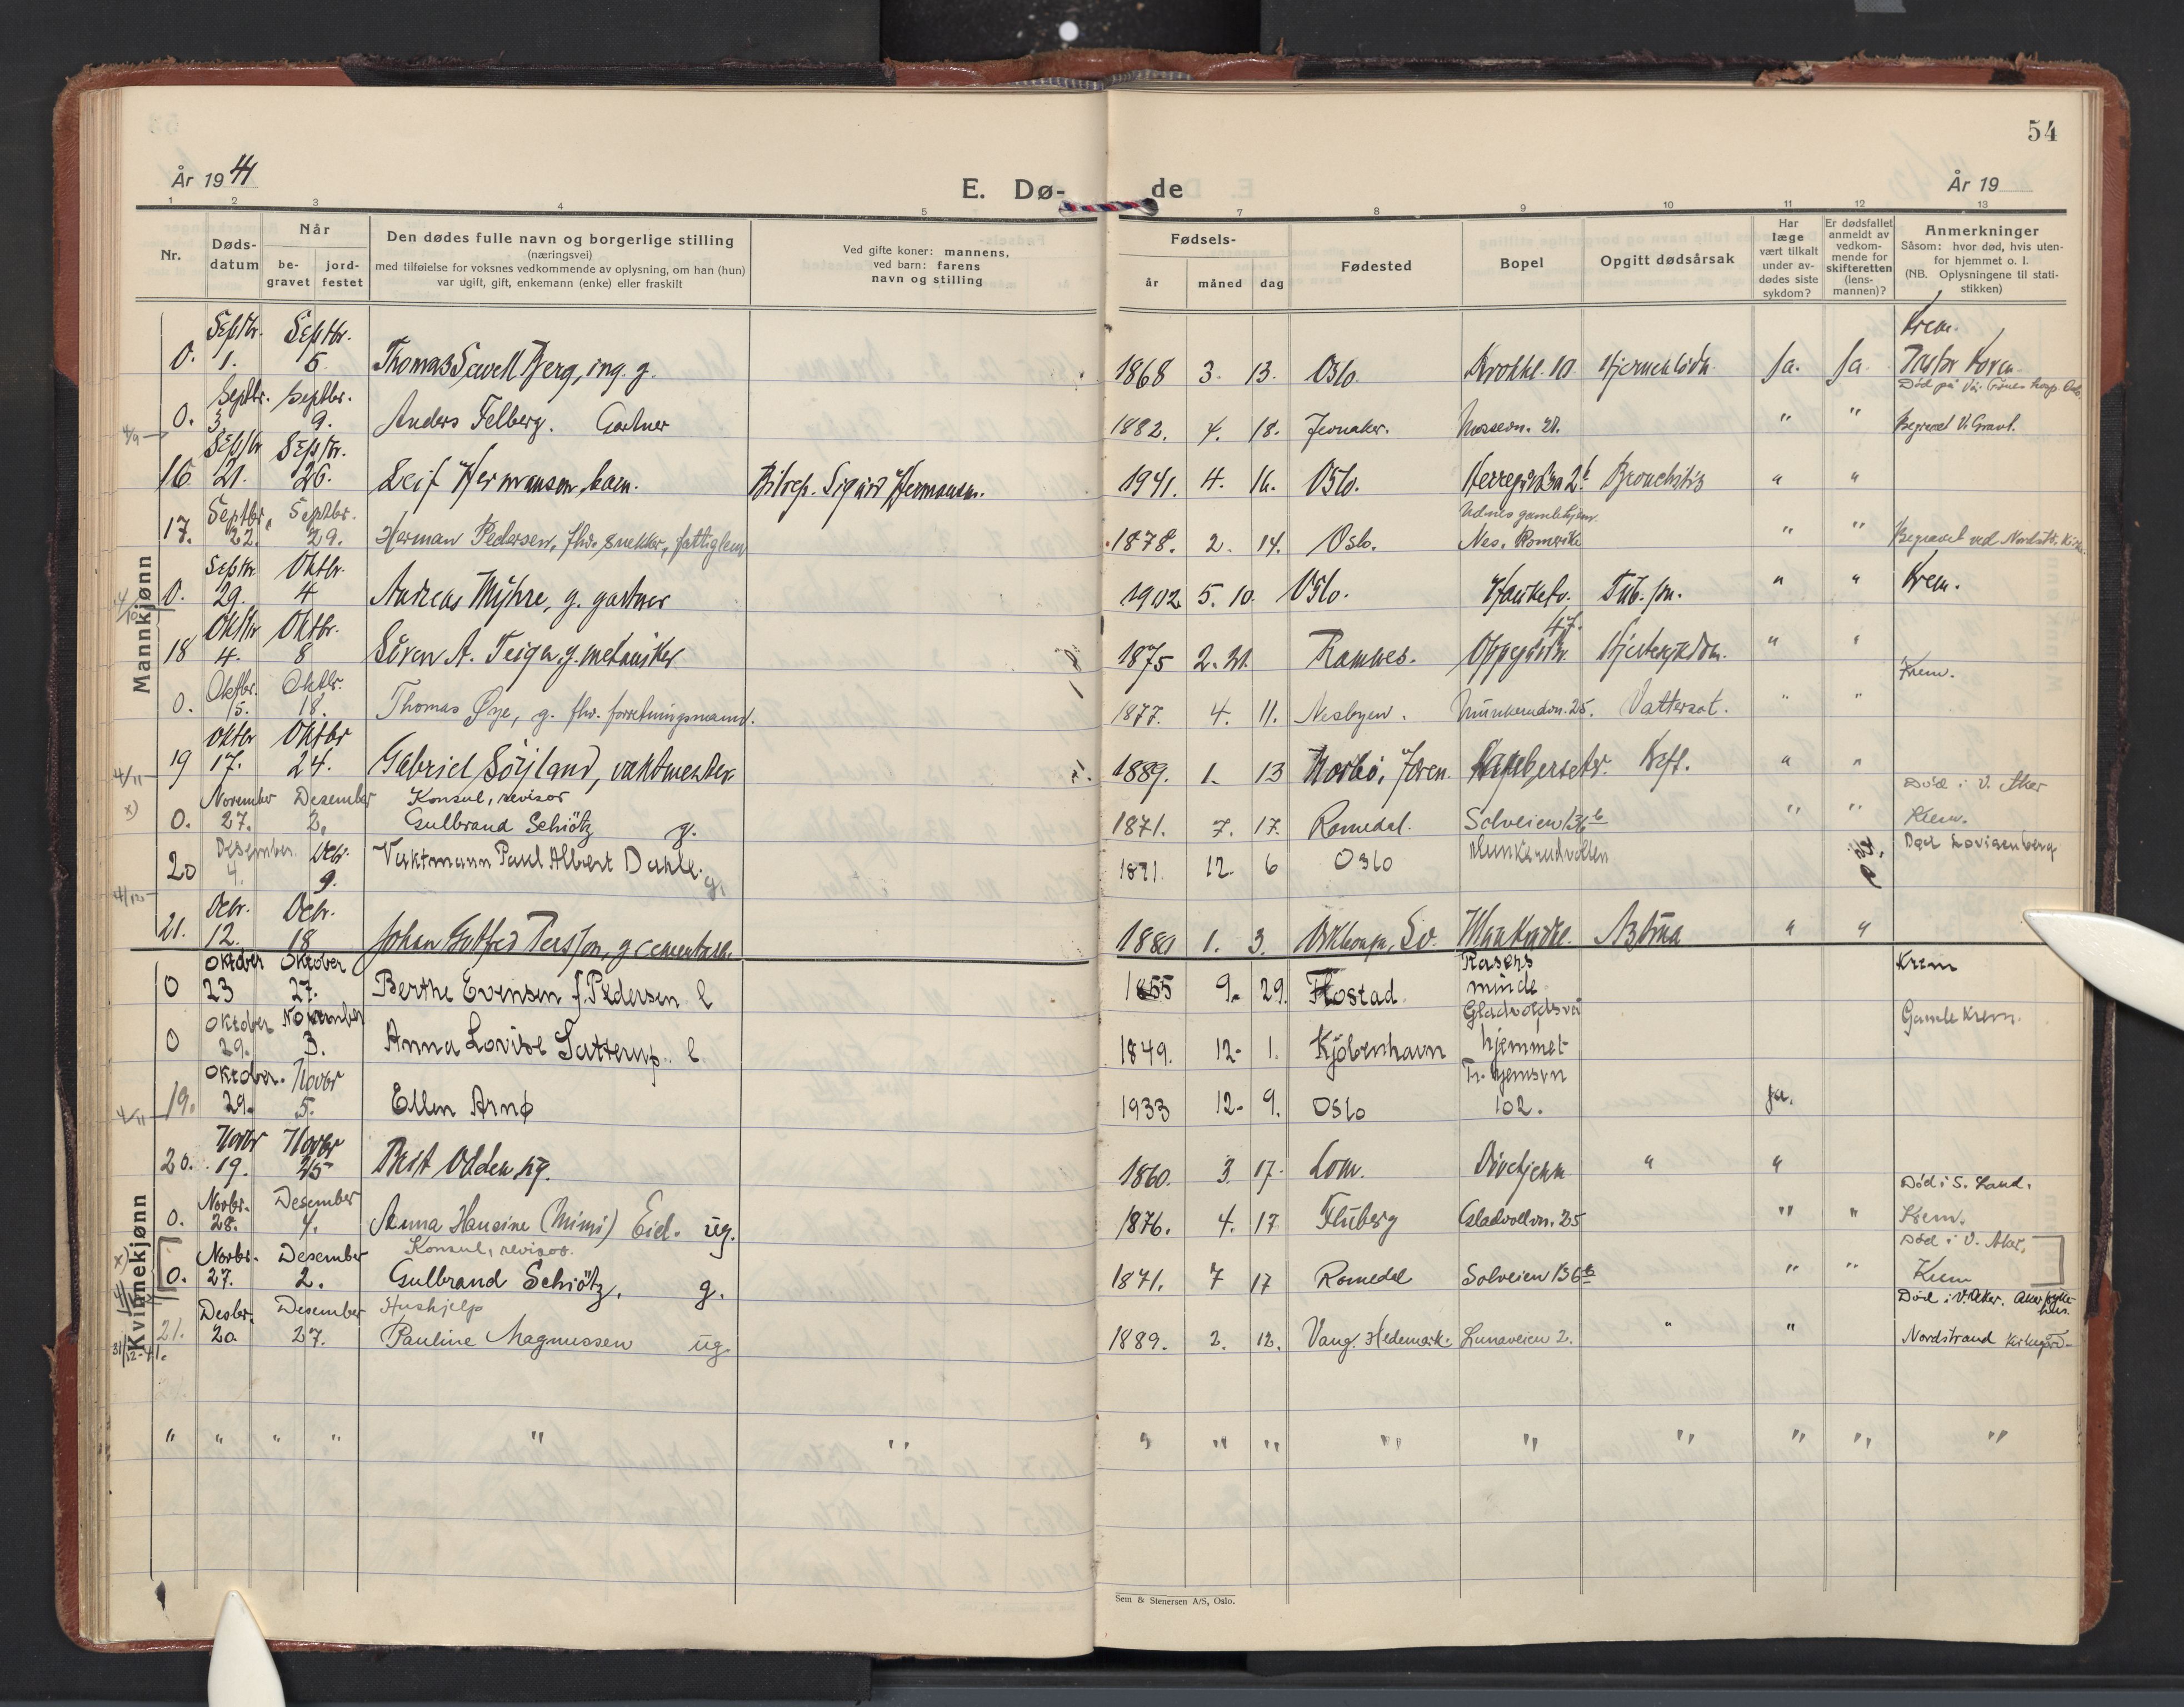 54
År 1941
E. Dø-
de
År 19
1 2 3 4 5 7 8 9 10 11 12 13
Nr.
Døds-
datum
Når
be-
gravet
jord-
festet
Den dødes fulle navn og borgerlige stilling
(næringsvei)
med tilføielse for voksnes vedkommende av oplysning, om han (hun)
var ugift, gift, enkemann (enke) eller fraskilt
Ved gifte koner: mannens,
ved barn: farens
navn og stilling
Fødsels-
år måned dag
Fødested
Bopel
Opgitt dødsårsak
Har
læge
vært tilkalt
under av-
dødes siste
sykdom?
Er dødsfallet
anmeldt av
vedkom-
mende for
skifteretten
(lens-
mannen)?
Anmerkninger
Såsom: hvor død, hvis uten-
for hjemmet o. l.
(NB. Oplysningene til stati-
stikken)
Mannkjønn
Septbr. Septbr. Krem.
0. 1. 5. Thomas Sewell Berg, ing. g. 1868 3. 13. Oslo. 10 Ja. Ja
Septbr. Septbr. Død på
0. 3. 9. Anders Felberg. Gartner 1882. 4. 18. Jevnaker. Mossevn. 21. " " Begravet V. Gravl.
4/9
Septbr Septbr.
16 21. 26. Leif Hermansen, barn. Sigurd Hermansen. 1941. 4. 16. Oslo. Bronchitis " "
Septbr. Septbr. Udnes gamlehjem
17. 22. 29. Herman Pedersen, fhv. snekker, fattiglem 1878. 2. 14. Oslo. Nes. Romerike " " Begravet ved Nordstr. Kirke.
Septbr. Oktbr.
0. 29. 4 Andreas Myhre, g. gartner 1902 5. 10. Oslo. Hauketo. Tub. pu. " " Krem.
Oktbr Oktbr. 47.
18 4. 8 Søren A. Teigen, g. mekaniker 1875 2. 21. Ramnes. Oppegårdv. Hjertesykdom. " "
Oktbr. Oktbr. Krem.
0. 15. 18. Thomas Øye, g. fhv. forretningsmand. 1877. 4. 11. Nesbyen. Munkerudvn. 25. Vattersot. " "
Oktbr Oktbr
19 17. 24. Gabriel Söyland, vaktmester. 1889. 1. 13 Kreft. " "
4/11
x) November Desember Konsul, revisor Död i V. Aker
0. 27. 2. Gulbrand Schiötz g. 1871. 7. 17. Romedal. Solveien 136 b " " Krem.
Desember. Debr. Død Lovisenberg
20 4. 9. Vaktmann Paul Albert Dahle. g. 1871. 12. 6 Oslo Munkerudvollen
4/12
Debr. Debr.
21. 12. 18 Johan Gotfred Persson, g cementarb. 1881 1. 3. Astma " "
Kvinnekjønn
Oktober Oktober Krem
0 23 27. Berthe Evensen f. Pedersen e 1855 9. 29. Flostad minde
Oktober November Gamle Krem.
0 29. 3. Anna Lovise Satterup. e 1849. 12. 1. Kjöbenhavn hjemmet
Oktober. Novbr
19. 29. 5. Ellen Arnø 1933 12. 9. Oslo 102. Ja.
4/11
Novbr Novbr
20. 19. 25 Brit Odden ug. 1860. 3 17. Lom. Døvehjem " "
Novbr. Desember Död i S. Land.
0. 28. 4. Anna Hansine (Mimi) Eid. ug. 1876. 4. 17 Fluberg Gladvollvn. 25 " " Krem.
x) Novbr. Desember Konsul, revisor. Död i V. Aker,
0. 27. 2. Gulbrand Schiötz. g. 1871. 7 17 Romedal Solveien 136 b " " Krem
Desbr. Desember Hushjelp Död i V. Aker. Aker sykehus.
21. 20 27. Pauline Magnussen ug. 1889. 2. 12. Vang. Hedemark. Lunaveien 2. " " Nordstrand kirkegård.
31/12-41.
" " " " " " " " " " " " " " "
Sem & Stenersen A/S, Oslo.